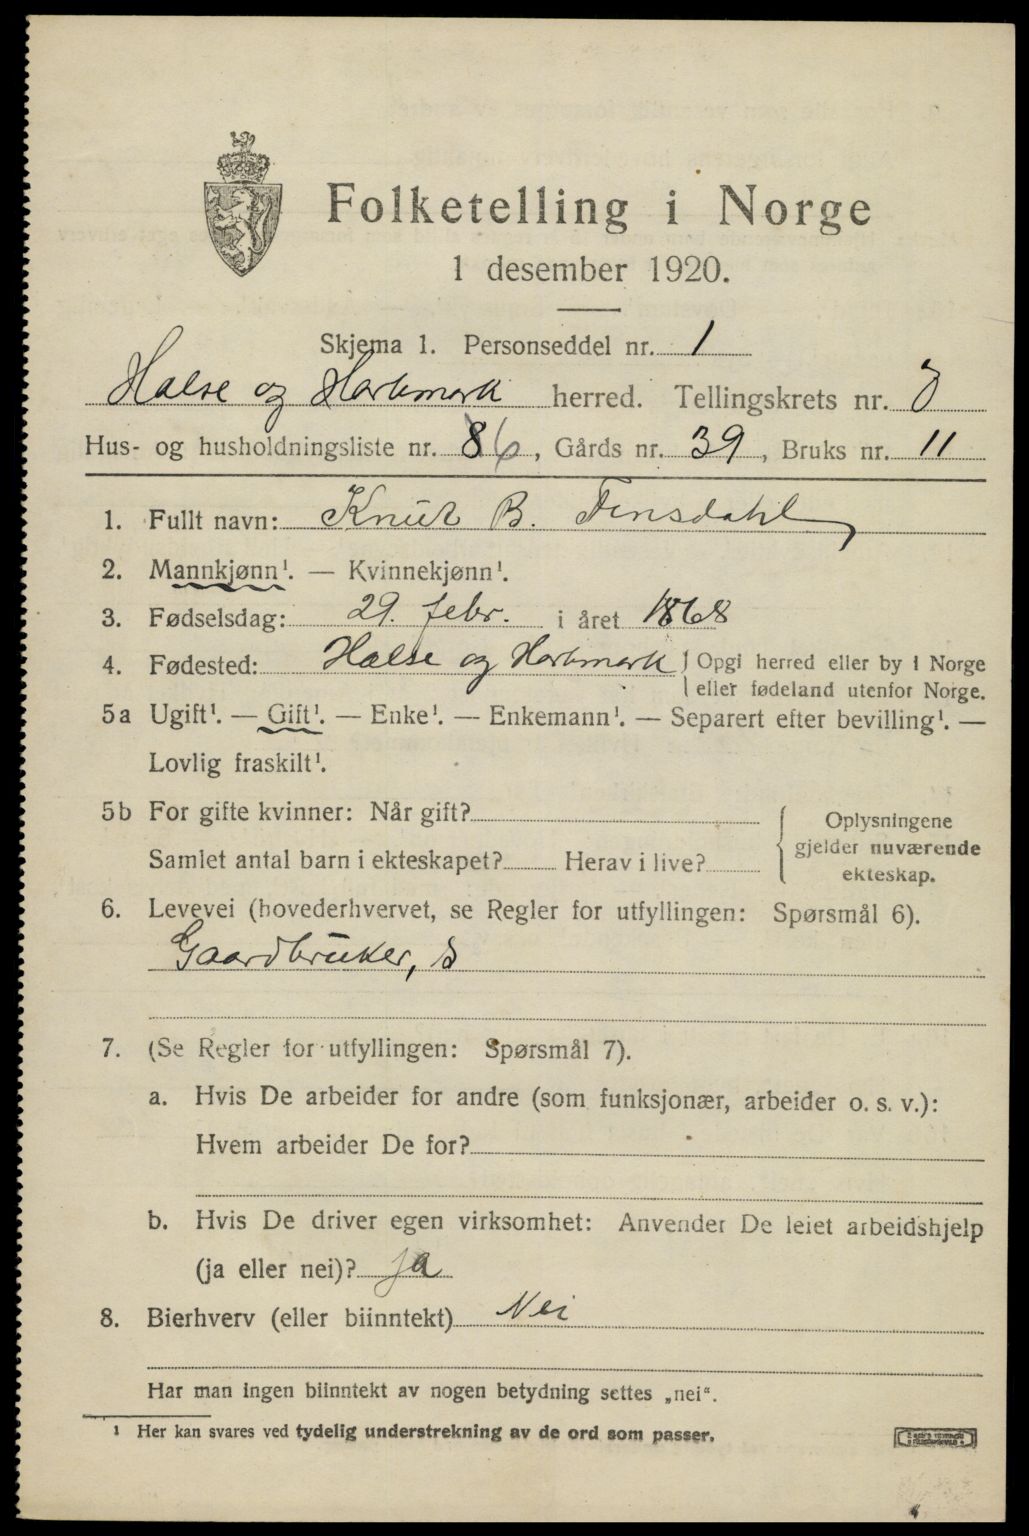 Folketelling i Norge
1 desember 1920.
Skjema 1. Personseddel nr. 1
Halse og Harkmark herred. Tellingskrets nr. 3
Hus- og husholdningsliste nr. 86, Gårds nr. 39, Bruks nr. 11
1. Fullt navn: Knut B. Finsdahl,
2. Mannkjønn¹. — Kvinnekjønn¹.
3. Fødselsdag: 29. febr. i året 1868
4. Fødested: Halse og Harkmark { Opgi herred eller by i Norge
eller fødeland utenfor Norge.
5a Ugift¹. — Gift¹. — Enke¹. — Enkemann¹. — Separert efter bevilling¹. —
Lovlig fraskilt¹.
5b For gifte kvinner: Når gift?
Samlet antal barn i ekteskapet? Herav i live?
Oplysningene
gjelder nuværende
ekteskap.
6. Levevei (hovederhvervet, se Regler for utfyllingen: Spørsmål 6).
Gaardbruker, s
7. (Se Regler for utfyllingen: Spørsmål 7).
a. Hvis De arbeider for andre (som funksjonær, arbeider o. s. v.):
Hvem arbeider De for?
b. Hvis De driver egen virksomhet: Anvender De leiet arbeidshjelp
(ja eller nei)? ja
8. Bierhverv (eller biinntekt) Nei
Har man ingen biinntekt av nogen betydning settes „nei“.
¹ Her kan svares ved tydelig understrekning av de ord som passer.